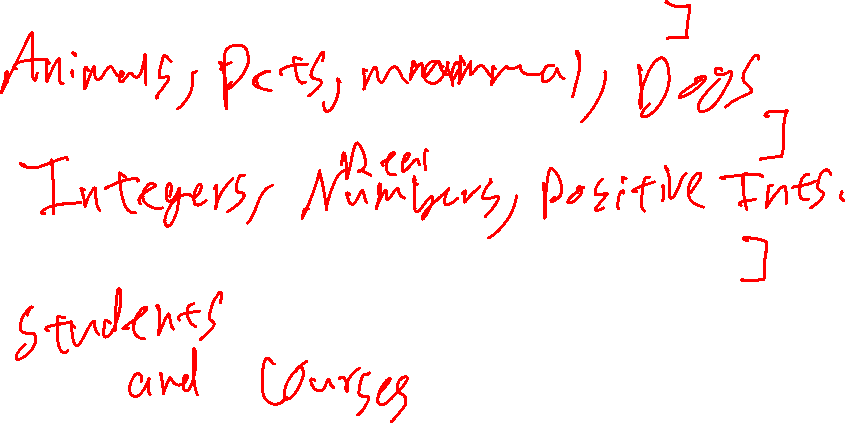 ]
Animals, Pets, mammal, Dogs
]
Integers, Real Numbers, Positive Ints.
]
Students
and Courses